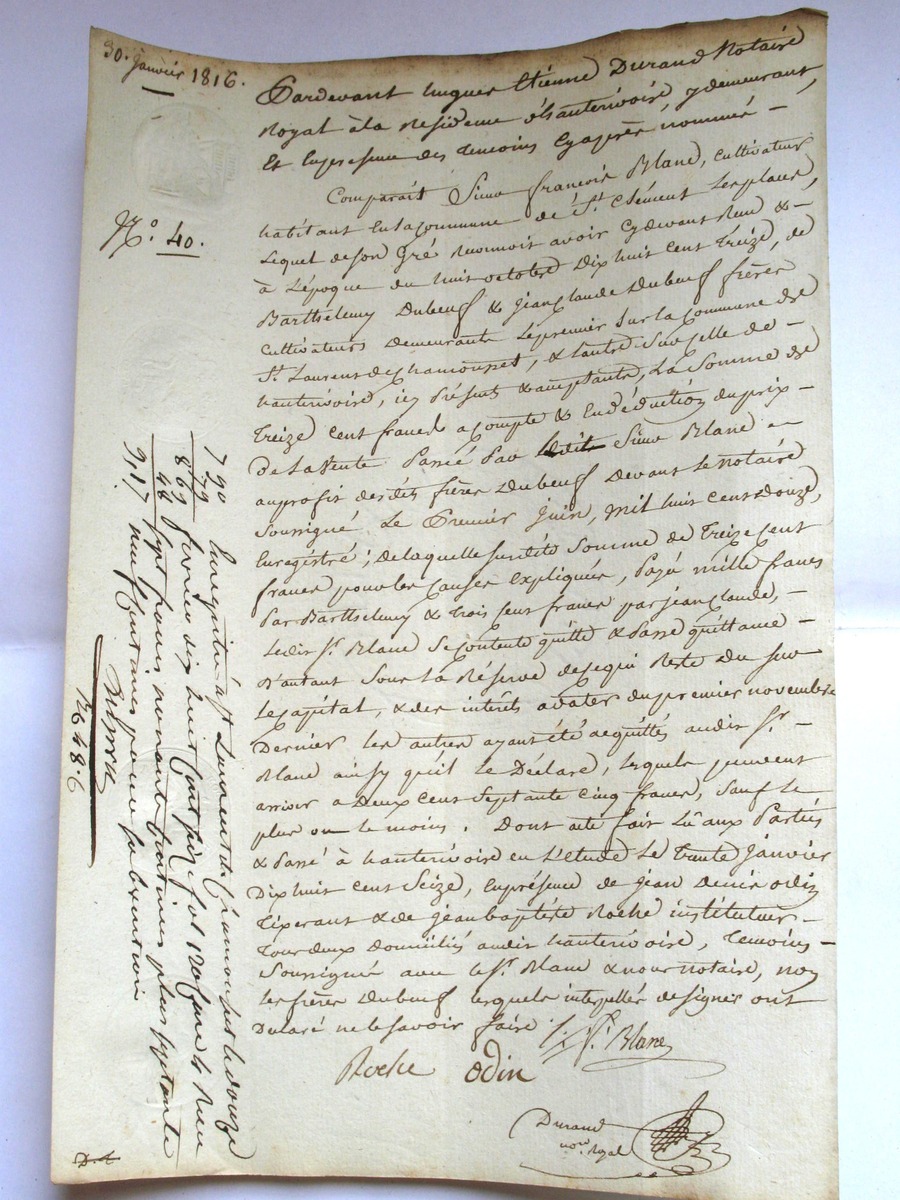 30. janvier 1816.
N.o 40.
Pardevant hugues Etienne Durand Notaire
Royal à la Residence d'hauterivoire, y demeurant,
Et en presence des temoins cy après nommés –
Comparait Sieur francois Blanc, cultivateur
habitant en la Commune de St. Clément les places,
Lequel de son gré reconnoit avoir cy devant Reçu &
à l'époque du huit octobre Dix huit Cent treize, de
Barthelemy Dubeuf & jean Claude Dubeuf frères
Cultivateurs demeurants le premier sur la Commune de
St. Laurent de Chamousset, & l'autre sur celle de –
hauterivoire, icy Présents & acceptants, La Somme de
Treize cent francs a compte & en déduction du prix –
De la Vente Passée Par ledit Sieur Blanc –
au profit des dits frères Dubeuf Devant le notaire
Soussigné Le Premier juin, Mil huit cent douze,
Enregistré ; de laquelle susdite Somme de Treize Cent
francs pour les causes Expliquées, Payé mille francs
Par Barthelemy & trois Cent francs par jean Claude, –
Ledit Sr. Blanc Se contente quitte & Passe quittance –
D'autant Sous la Réserve de ce qui Reste Du sur
Le capital, & des intérêts a dater du premier novembre
Dernier les autres ayant été acquittés audit Sr.
Blanc ainsy qu'il le Déclare, lesquels peuvent
arriver a Deux cent Septante cinq francs, Sauf le
plus ou le moins. Dont acte fait Lu aux Parties
& Passé à hauterivoire en L'etude Le trente janvier
Dix huit Cent Seize, en présence de jean Denis odin
& de jean baptiste Roche instituteur –
tous deux Domiciliés audit hauterivoire, temoins –
Soussignés avec le Sr. Blanc & nous notaire, non
les frères Dubeuf lesquels interpellés de signer ont
Déclaré ne le Savoir faire
Blanc
Roche odin
Durand
nore. Royal
Enregistré à St Laurent de Chamousset le douze
février dix huit cent seize fol. 120 Reçu
sept francs nonante centimes plus septante
neuf centimes pour subvention
7 90
79
8 69
48
9 17